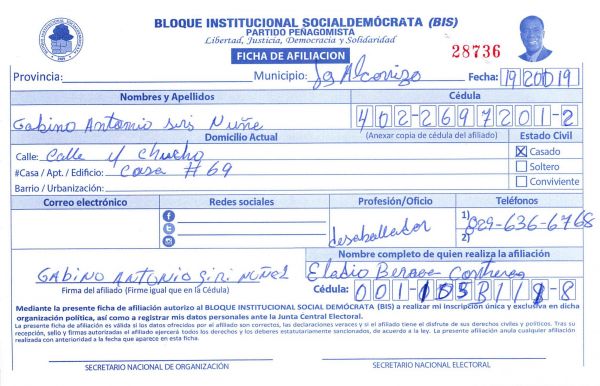 BLOQUE INSTITUCIONAL SOCIALDEMÓCRATA (BIS)
PARTIDO PEÑAGOMISTA
Libertad, Justicia, Democracia y Solidaridad
FICHA DE AFILIACION
28736
Provincia: Municipio: Los Alcarrizo Fecha: 19 200 19
Nombres y Apellidos
Cédula
Gabino Antonio siri Nuñe
402-2697201-2
Domicilio Actual
(Anexar copia de cédula del afiliado)
Estado Civil
Calle: Calle y chucho
#Casa / Apt. / Edificio: Casa #69
Barrio / Urbanización:
X Casado
Soltero
Conviviente
Correo electrónico
Redes sociales
Profesión/Oficio
Teléfonos
desaballador
1) 829-636-6768
2)
Nombre completo de quien realiza la afiliación
GABINO ANTONIO SIRI NUÑEZ
Eladio Contreras
Firma del afiliado (Firme igual que en la Cédula)
Cédula: 001-
Mediante la presente ficha de afiliación autorizo al BLOQUE INSTITUCIONAL SOCIAL DEMÓCRATA (BIS) a realizar mi inscripción única y exclusiva en dicha
organización política, así como a registrar mis datos personales ante la Junta Central Electoral.
La presente ficha de afiliación es válida si los datos ofrecidos por el afiliado son correctos, las declaraciones veraces y si el afiliado tiene el disfrute de sus derechos civiles y políticos. Tras su
recepción, sello y firmas autorizadas el afiliado ejercerá todos los derechos y los deberes estatutariamente sancionados, de acuerdo a la ley. La presente afiliación anula cualquier afiliación
realizada con anterioridad a la fecha que aparece en esta ficha.
SECRETARIO NACIONAL DE ORGANIZACIÓN
SECRETARIO NACIONAL ELECTORAL